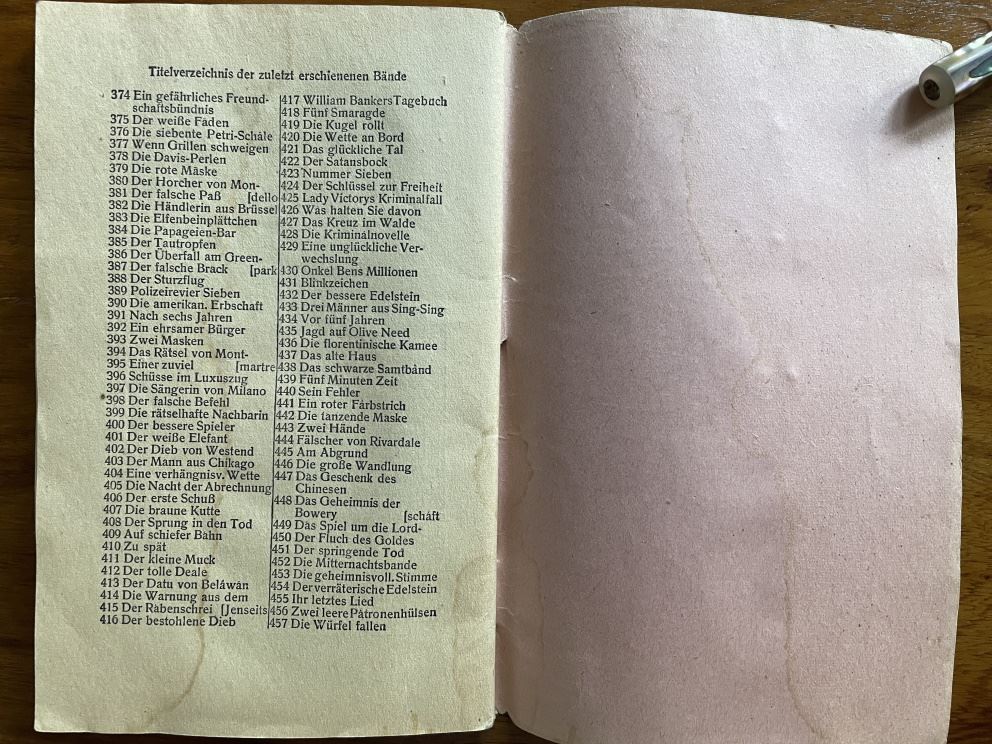 Titelverzeichnis der zuletzt erschienenen Bände
374 Ein gefährliches Freund-
schaftsbündnis
375 Der weiße Faden
376 Die siebente Petri-Schale
377 Wenn Grillen schweigen
378 Die Davis-Perlen
379 Die rote Maske
380 Der Horcher von Mon-
381 Der falsche Paß [dello
382 Die Händlerin aus Brüssel
383 Die Elfenbeinplättchen
384 Die Papageien-Bar
385 Der Tautropfen
386 Der Überfall am Green-
387 Der falsche Brack [park
388 Der Sturzflug
389 Polizeirevier Sieben
390 Die amerikan. Erbschaft
391 Nach sechs Jahren
392 Ein ehrsamer Bürger
393 Zwei Masken
394 Das Rätsel von Mont-
395 Einer zuviel [martre
396 Schüsse im Luxuszug
397 Die Sängerin von Milano
398 Der falsche Befehl
399 Die rätselhafte Nachbarin
400 Der bessere Spieler
401 Der weiße Elefant
402 Der Dieb von Westend
403 Der Mann aus Chikago
404 Eine verhängnisv. Wette
405 Die Nacht der Abrechnung
406 Der erste Schuß
407 Die braune Kutte
408 Der Sprung in den Tod
409 Auf schiefer Bahn
410 Zu spät
411 Der kleine Muck
412 Der tolle Deale
413 Der Datu von Beláwàn
414 Die Warnung aus dem
415 Der Rabenschrei [Jenseits
416 Der bestohlene Dieb
417 William Bankers Tagebuch
418 Fünf Smaragde
419 Die Kugel rollt
420 Die Wette an Bord
421 Das glückliche Tal
422 Der Satansbock
423 Nummer Sieben
424 Der Schlüssel zur Freiheit
425 Lady Victorys Kriminalfall
426 Was halten Sie davon
427 Das Kreuz im Walde
428 Die Kriminalnovelle
429 Eine unglückliche Ver-
wechslung
430 Onkel Bens Millionen
431 Blinkzeichen
432 Der bessere Edelstein
433 Drei Männer aus Sing-Sing
434 Vor fünf Jahren
435 Jagd auf Olive Need
436 Die florentinische Kamee
437 Das alte Haus
438 Das schwarze Samtband
439 Fünf Minuten Zeit
440 Sein Fehler
441 Ein roter Farbstrich
442 Die tanzende Maske
443 Zwei Hände
444 Fälscher von Rivardale
445 Am Abgrund
446 Die große Wandlung
447 Das Geschenk des
Chinesen
448 Das Geheimnis der
Bowery [schaft
449 Das Spiel um die Lord-
450 Der Fluch des Goldes
451 Der springende Tod
452 Die Mitternachtsbande
453 Die geheimnisvoll. Stimme
454 Der verräterische Edelstein
455 Ihr letztes Lied
456 Zwei leere Patronenhülsen
457 Die Würfel fallen